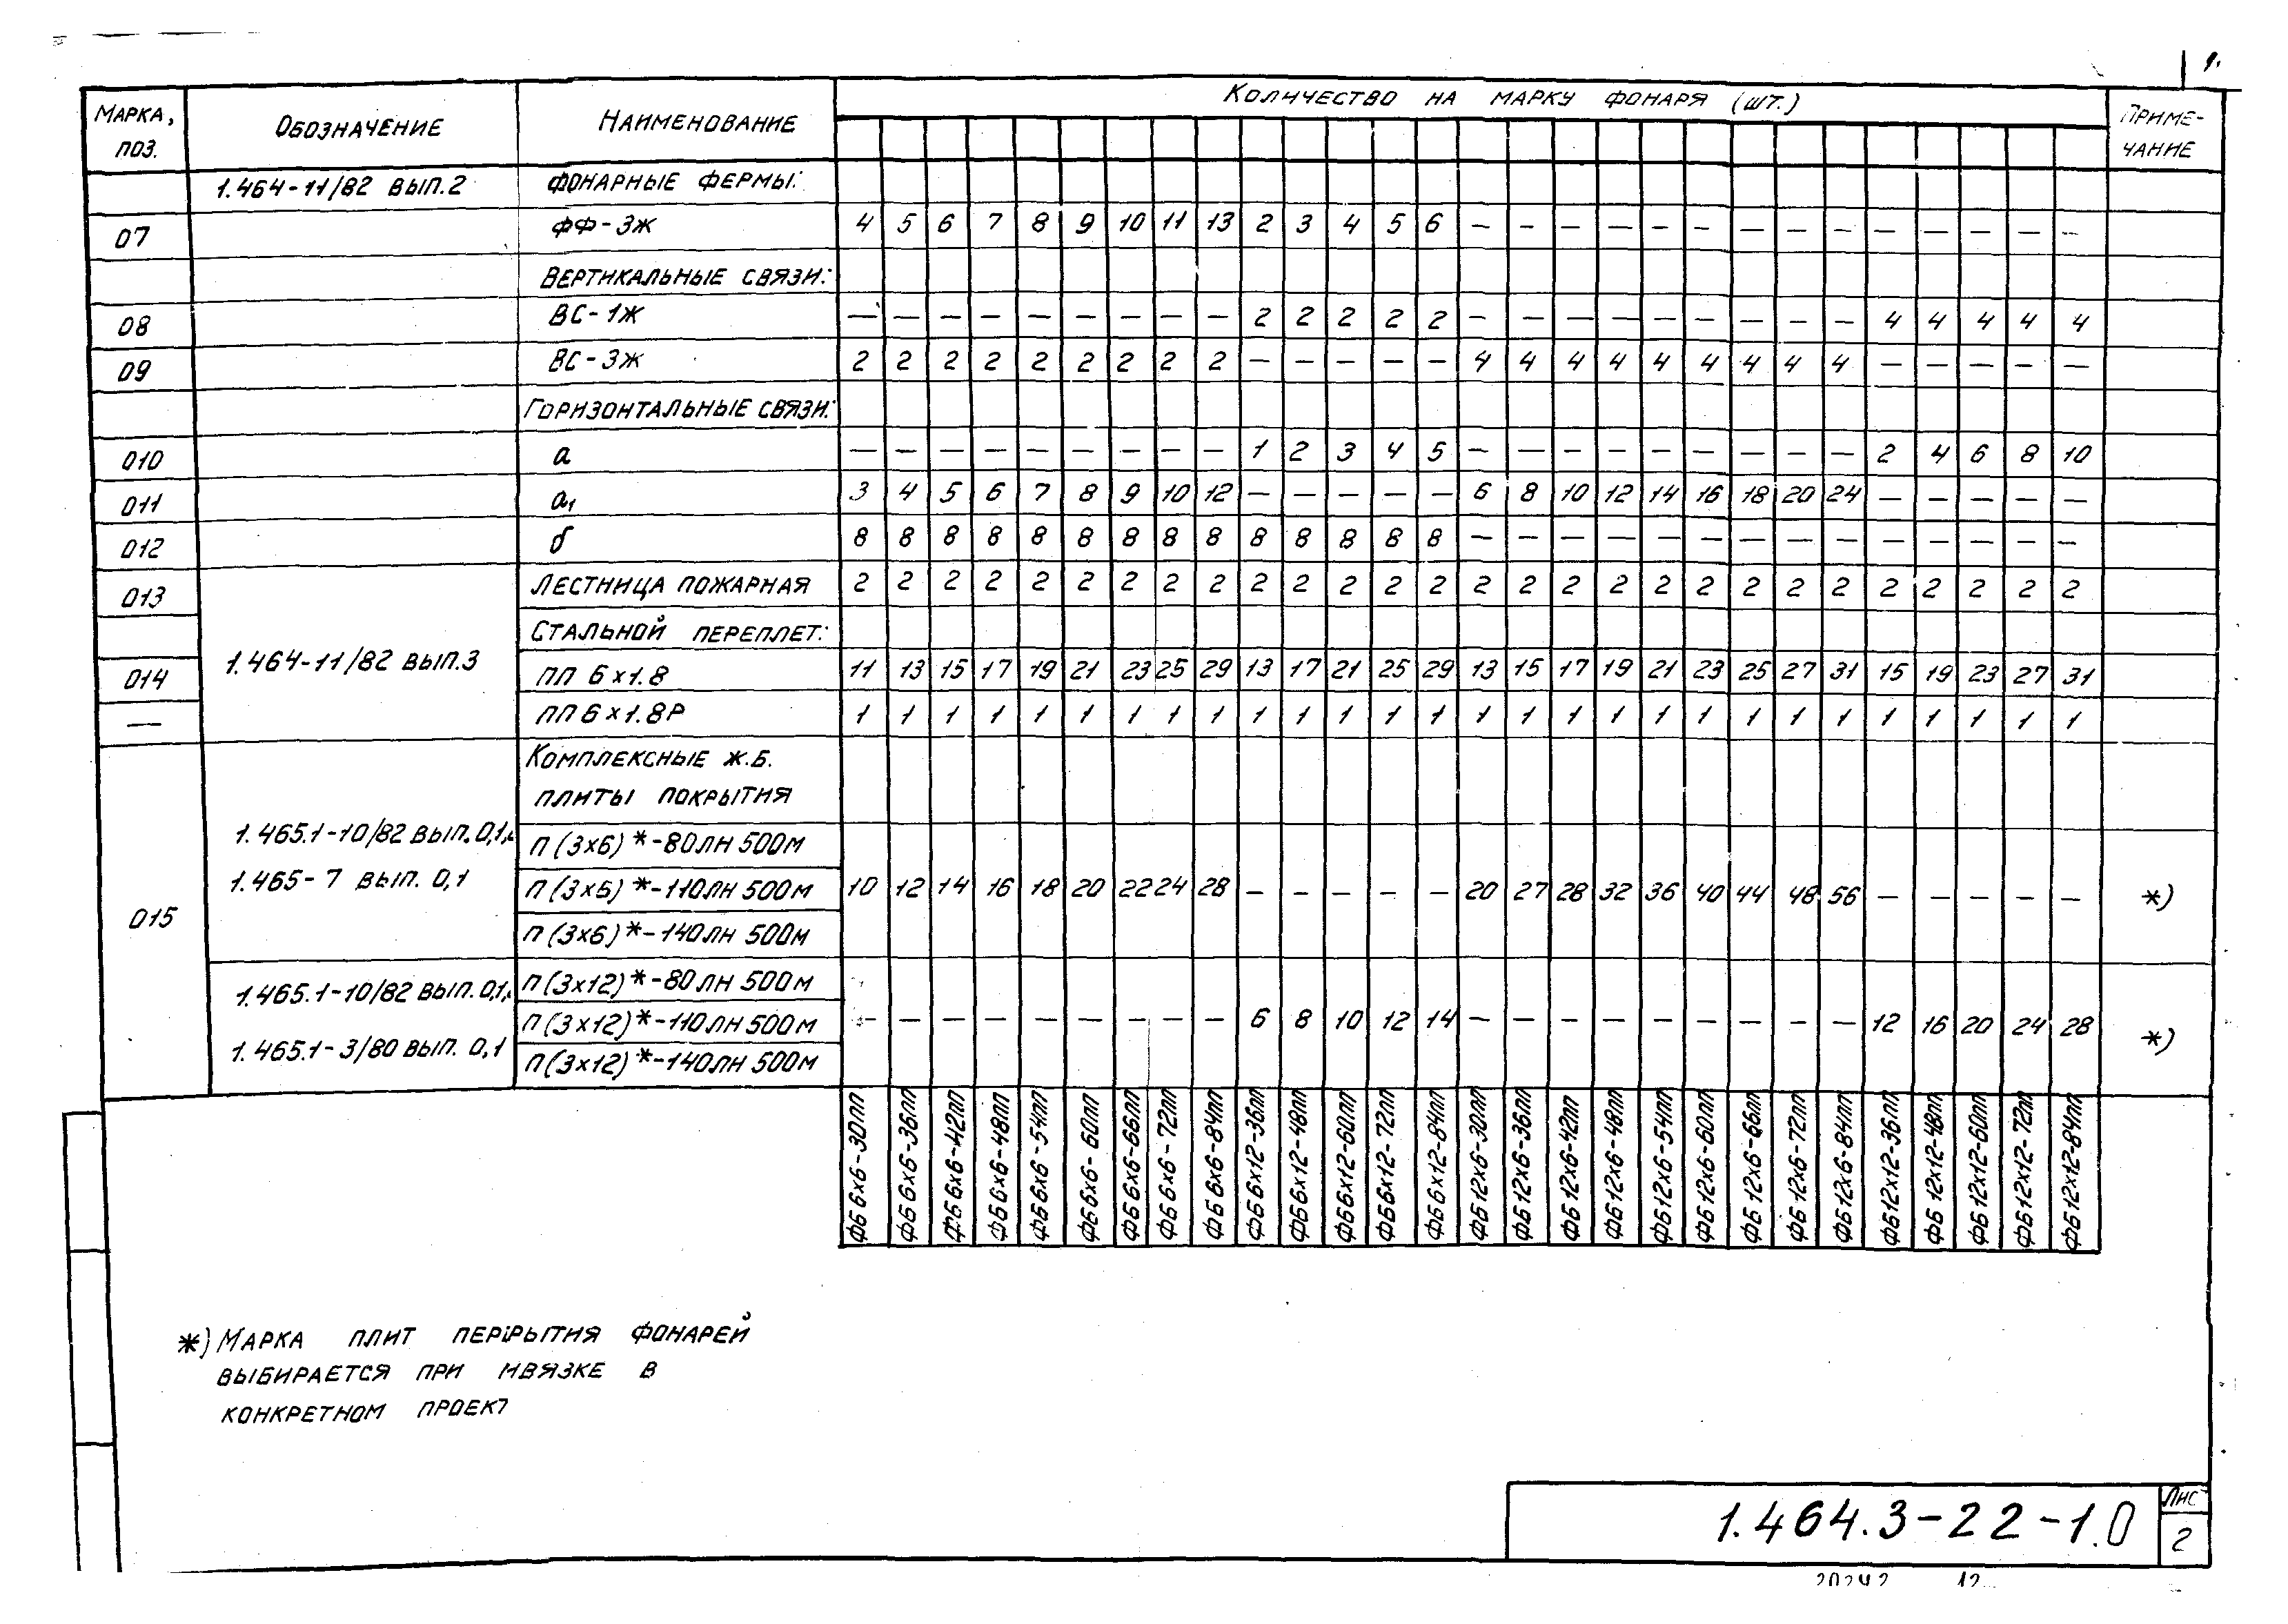 1.
МАРКА, ПОЗ. ОБОЗНАЧЕНИЕ НАИМЕНОВАНИЕ КОЛИЧЕСТВО НА МАРКУ ФОНАРЯ (ШТ.) ПРИМЕ-ЧАНИЕ
1.464-11/82 ВЫП.2 ФОНАРНЫЕ ФЕРМЫ:
07 ФФ-3Ж 4 5 6 7 8 9 10 11 13 2 3 4 5 6 — — — — — — — — — — — — — —
ВЕРТИКАЛЬНЫЕ СВЯЗИ:
08 ВС-1Ж — — — — — — — — — 2 2 2 2 2 — — — — — — — — — 4 4 4 4 4
09 ВС-3Ж 2 2 2 2 2 2 2 2 2 — — — — — 4 4 4 4 4 4 4 4 4 — — — — —
ГОРИЗОНТАЛЬНЫЕ СВЯЗИ:
010 а — — — — — — — — — 1 2 3 4 5 — — — — — — — — — 2 4 6 8 10
011 а1 3 4 5 6 7 8 9 10 12 — — — — — 6 8 10 12 14 16 18 20 24 — — — — —
012 б 8 8 8 8 8 8 8 8 8 8 8 8 8 8 — — — — — — — — — — — — — —
013 ЛЕСТНИЦА ПОЖАРНАЯ 2 2 2 2 2 2 2 2 2 2 2 2 2 2 2 2 2 2 2 2 2 2 2 2 2 2 2 2
СТАЛЬНОЙ ПЕРЕПЛЕТ:
1.464-11/82 ВЫП.3
014 ПП 6×1.8 11 13 15 17 19 21 23 25 29 13 17 21 25 29 13 15 17 19 21 23 25 27 31 15 19 23 27 31
— ПП 6×1.8Р 1 1 1 1 1 1 1 1 1 1 1 1 1 1 1 1 1 1 1 1 1 1 1 1 1 1 1 1
КОМПЛЕКСНЫЕ Ж.Б.
ПЛИТЫ ПОКРЫТИЯ
1.465.1-10/82 ВЫП.0,1, П(3×6)*-80ЛН 500М
015 1.465-7 ВЫП. 0,1 П(3×6)*-110ЛН 500М 10 12 14 16 18 20 22 24 28 — — — — — 20 27 28 32 36 40 44 48 56 — — — — — *)
П(3×6)*-140ЛН 500М
1.465.1-10/82 ВЫП.0,1, П(3×12)*-80ЛН 500М
П(3×12)*-110ЛН 500М — — — — — — — — — 6 8 10 12 14 — — — — — — — — — 12 16 20 24 28 *)
1.465.1-3/80 ВЫП. 0,1 П(3×12)*-140ЛН 500М
ФБ6×6-30ПП
ФБ6×6-36ПП
ФБ6×6-42ПП
ФБ6×6-48ПП
ФБ6×6-54ПП
ФБ6×6-60ПП
ФБ6×6-66ПП
ФБ6×6-72ПП
ФБ6×6-84ПП
ФБ6×12-36ПП
ФБ6×12-48ПП
ФБ6×12-60ПП
ФБ6×12-72ПП
ФБ6×12-84ПП
ФБ12×6-30ПП
ФБ12×6-36ПП
ФБ12×6-42ПП
ФБ12×6-48ПП
ФБ12×6-54ПП
ФБ12×6-60ПП
ФБ12×6-66ПП
ФБ12×6-72ПП
ФБ12×6-84ПП
ФБ12×12-36ПП
ФБ12×12-48ПП
ФБ12×12-60ПП
ФБ12×12-72ПП
ФБ12×12-84ПП
*) МАРКА ПЛИТ ФОНАРЕЙ
ВЫБИРАЕТСЯ ПРИ В
КОНКРЕТНОМ ПРОЕКТ
1.464.3-22-1.0
ЛИС
2
20242 12